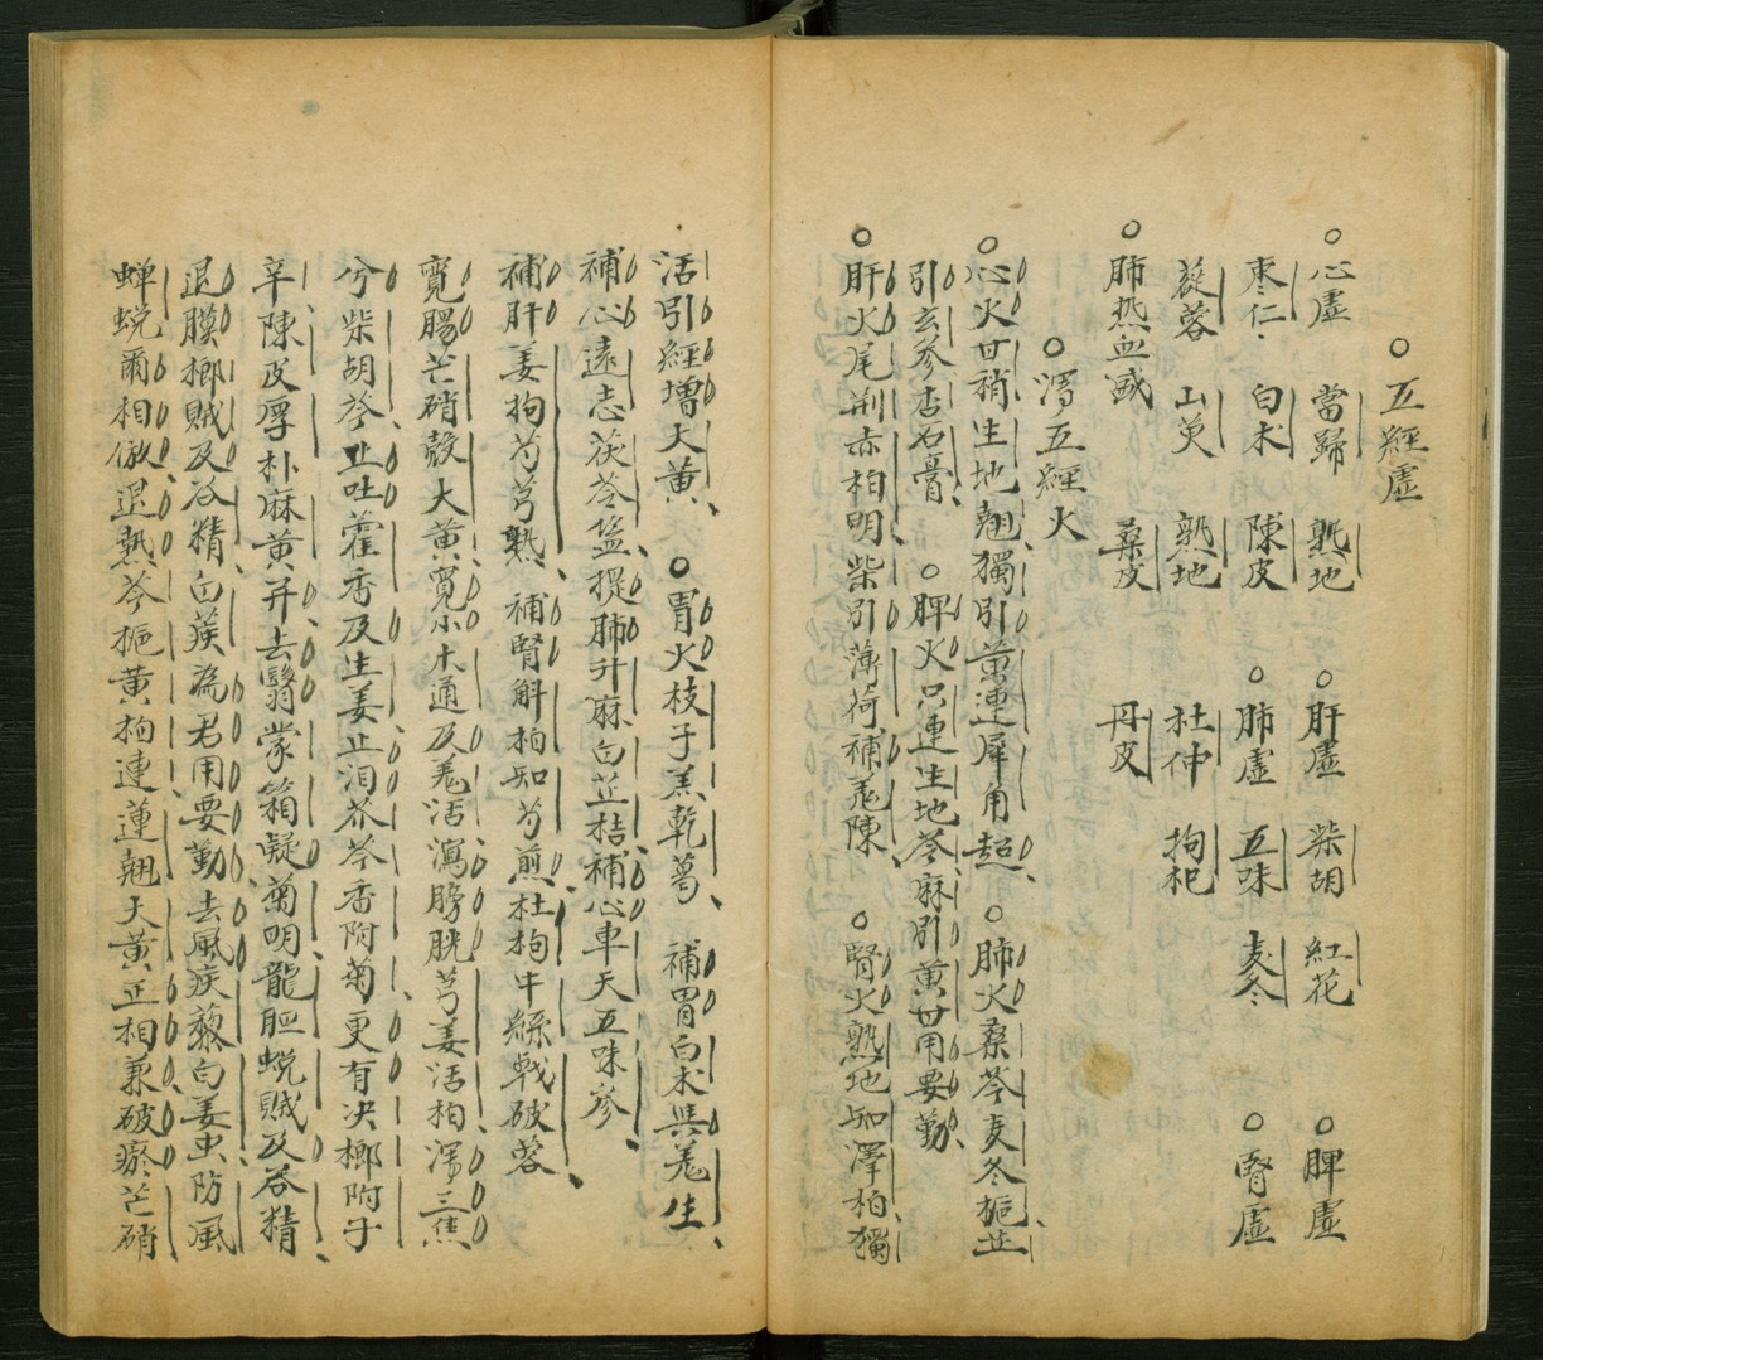 ○五經虛
○心虛 當歸 熟地 ○肝虛 柴胡 紅花 ○脾虛
枣仁 白术 陳皮 ○肺虛 五味 麦冬 ○腎虛
蓯蓉 山萸 熟地 杜仲 拘杞
○肺热血滅 桑皮 丹皮
○瀉五經火
○心火甘稍生地翹獨引黄連犀角超 ○肺火桑芩麦冬梔芷
引玄參杏石膏 ○脾火只連生地芩麻引黄甘用要勤
○肝火尾荆赤柏明柴引薄荷補羗陳 ○腎火熟地知澤柏獨
活引經增大黄 ○胃火枝子羔乾葛 補胃白术與羗生
補心遠志茯苓盐提肺升麻白芷桔補心車天五味參
補肝姜拘芍芎熟 補腎斛柏知芍煎杜拘牛縣戟破蓉
寬腸芒硝殼大黄寬小木通及羗活瀉膀胱芎姜活柏瀉三焦
兮柴胡芩止吐藿香及生姜止泪芥芩香附菊更有决榔附子
辛陳皮厚朴麻黄并去翳蒙箱凝菊明龍胆蜕贼及谷精
退膜榔贼及谷精白蒺為君用要勤去風疾藜白姜虫防風
蝉蜕爾相倣退熱芩梔黄柏連蓮翹大黄正相兼破瘀芒硝